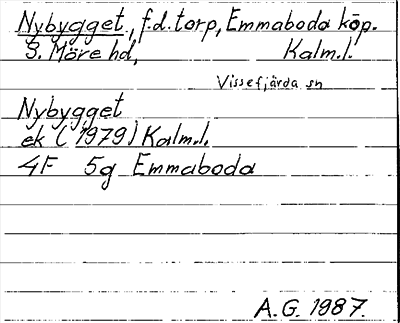 Nybygget, f.d. torp, Emmaboda köp.
S. Möre hd, Kalm.l.
Vissefjärda sn
Nybygget
ek (1979) Kalm.l.
4F 5g Emmaboda
A.G. 1987.